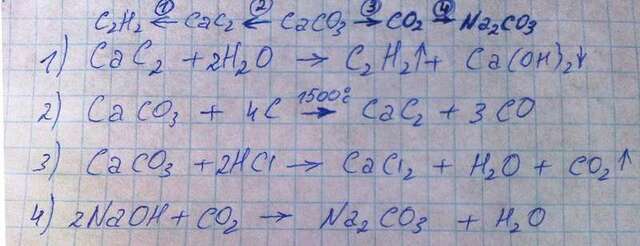 C₂H₂ ←① CaC₂ ←② CaCO₃ →③ CO₂ →④ Na₂CO₃
1) CaC₂ + 2H₂O → C₂H₂↑ + Ca(OH)₂↓
2) CaCO₃ + 4C 1500°C → CaC₂ + 3CO
3) CaCO₃ + 2HCl → CaCl₂ + H₂O + CO₂↑
4) 2NaOH + CO₂ → Na₂CO₃ + H₂O